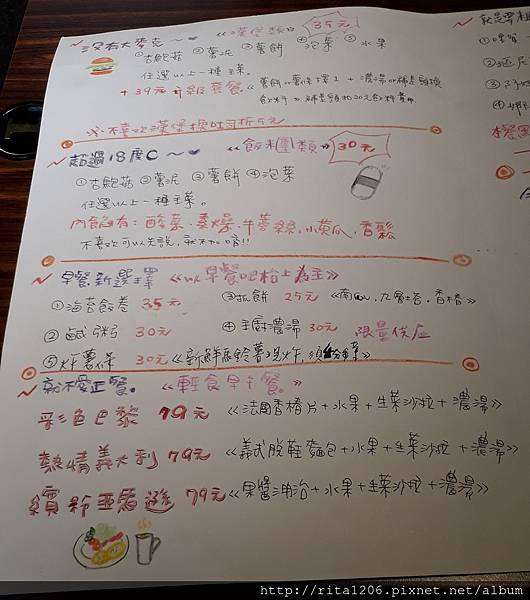 沒有大麥克~ 《漢堡類》 35元
①杏鮑菇 ②薯泥 ③薯餅 ④泡菜 ⑤水果
任選以上一種主菜。
+39元升級套餐《薯餅or薯條擇1+濃湯or
※不喜歡漢堡換吐司折5元
超過18度C~ 《飯糰類》 30元
①杏鮑菇 ②薯泥 ③薯餅 ④泡菜
任選以上一種主菜。
內餡有:酸菜.素燥.牛蒡絲.小黃瓜.香鬆
不喜歡可以先說,就不加唷!!
早餐新選擇 《以早餐吧枱上為主》
①海苔飯卷 35元 ③抓餅 25元 《南瓜.九層塔.香椿》
②鹹粥 30元 ④主廚濃湯 30元 限量供应
⑤炸薯條 30元《新鮮馬鈴薯現炸,須
就不愛正餐。 《輕食早午餐。》
彩色巴黎 79元 《法國香椿片+水果+生菜沙拉+濃湯》
熱情義大利 79元 《義式脫鞋麵包+水果+生菜沙拉+濃湯》
繽紛亞馬遜 79元 《果醬沺冶+水果+生菜沙拉+濃湯》
就是單
①
②
③
④
http://rita1206.pixnet.net/album